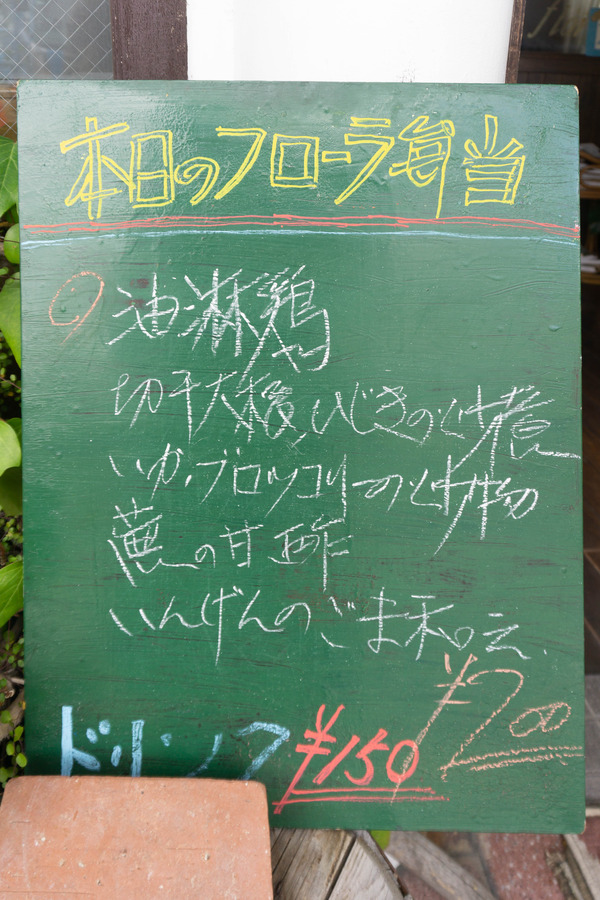 本日のフローラ弁当
油淋鶏
切干大根,ひじきの
いか,ブロッコリーの
の甘酢
いんげんのごま和え
¥700
ドリンク ¥150